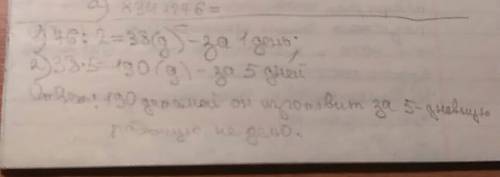 а) 834:746=
1) 76:2=38(д) - за 1 день;
2) 38·5=190(д) - за 5 дней
Ответ: 190 деталей он изготовит за 5-дневную
рабочую неделю.